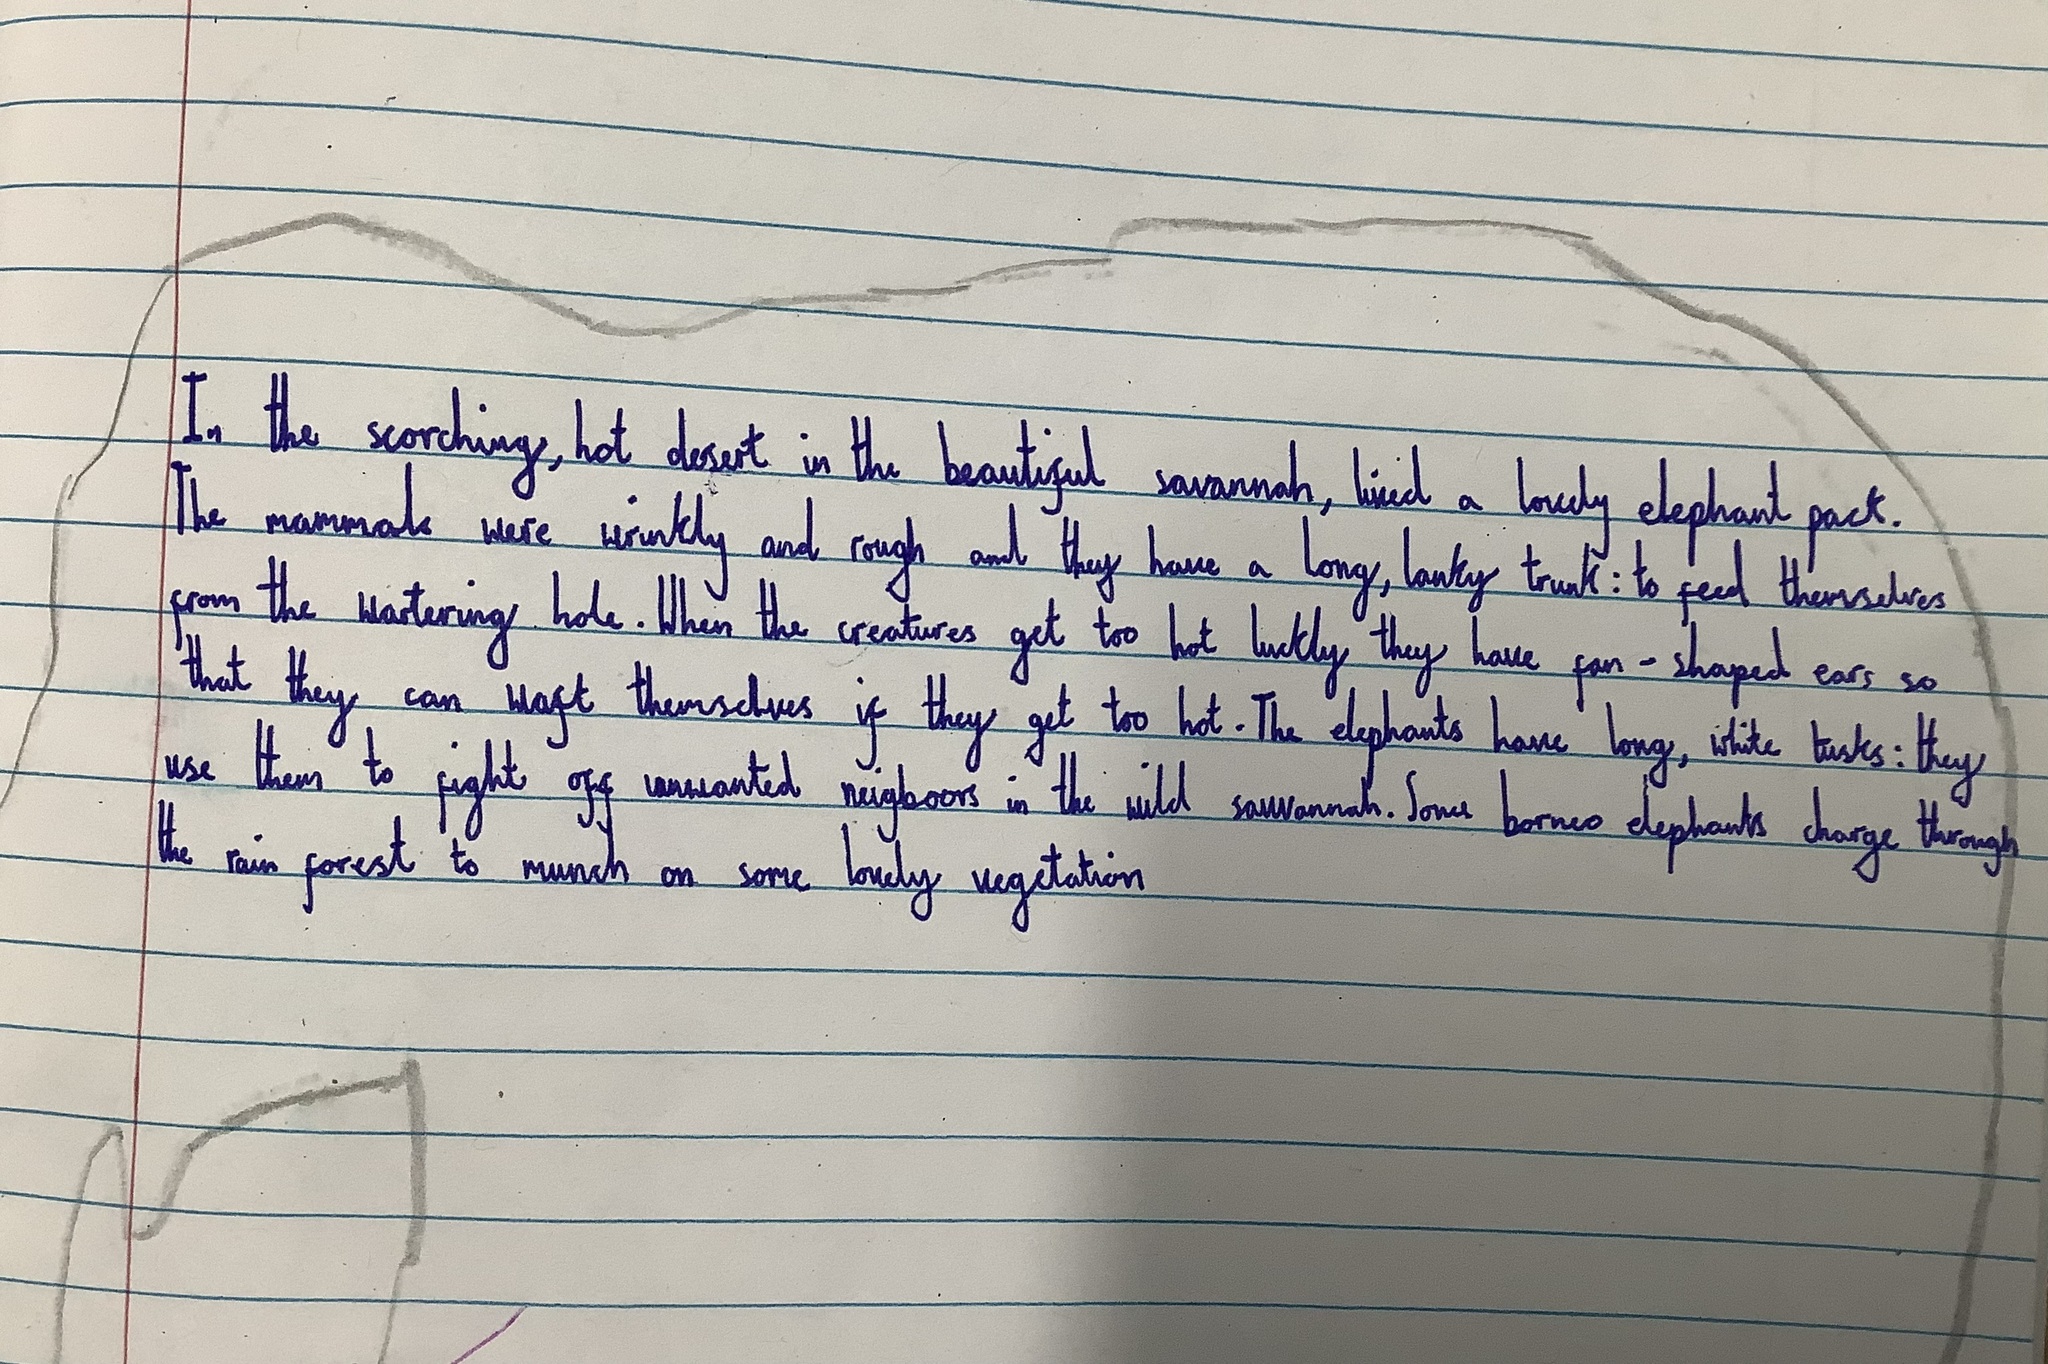 In the scorching, hot desert in the beautiful savannah, lived a lovely elephant pack.
The mammals were wrinkly and rough and they have a long, lanky trunk: to feed themselves
from the wartering hole. When the creatures get too hot luckly they have fan-shaped ears so
that they can waft themselves if they get too hot. The elephants have long, white tusks: they
use them to fight off unwanted neigboors in the wild sauvannah. Some borneo elephants charge through
the rain forest to munch on some lovely vegetation